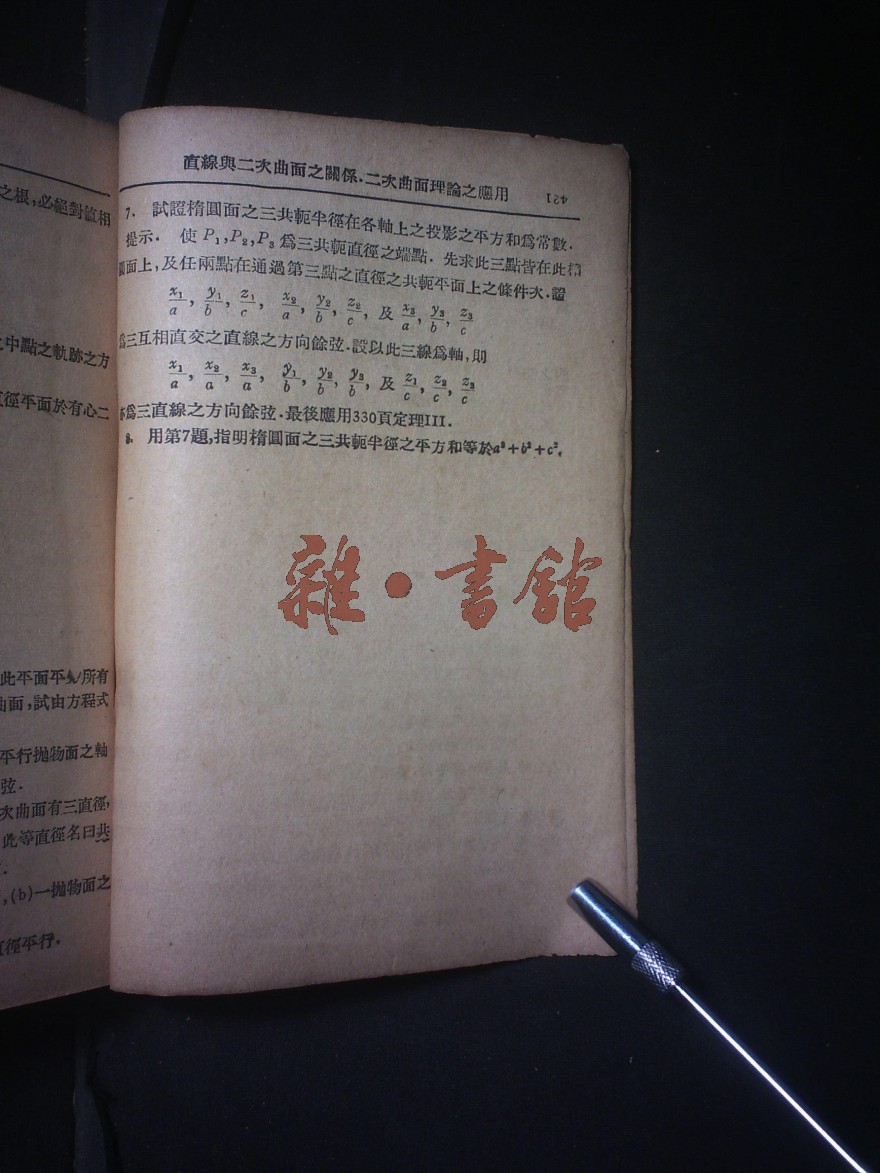 之根,必絕對值相
之中點之軌跡之方
徑平面於有心二
此平面平分所有
曲面,試由方程式
平行拋物面之軸
弦.
次曲面有三直徑,
此等直徑名曰共
,(b)一拋物面之
直徑平行.
直線與二次曲面之關係.二次曲面理論之應用 421
7. 試證橢圓面之三共軛半徑在各軸上之投影之平方和爲常數.
提示. 使 P₁,P₂,P₃ 爲三共軛直徑之端點. 先求此三點皆在此橢
圓面上,及任兩點在通過第三點之直徑之共軛平面上之條件.次證
x₁/a, y₁/b, z₁/c, x₂/a, y₂/b, z₂/c, 及 x₃/a, y₃/b, z₃/c
爲三互相直交之直線之方向餘弦.設以此三線爲軸,則
x₁/a, x₂/a, x₃/a, y₁/b, y₂/b, y₃/b, 及 z₁/c, z₂/c, z₃/c
亦爲三直線之方向餘弦.最後應用330頁定理III.
8. 用第7題,指明橢圓面之三共軛半徑之平方和等於a²+b²+c².
雜·書館